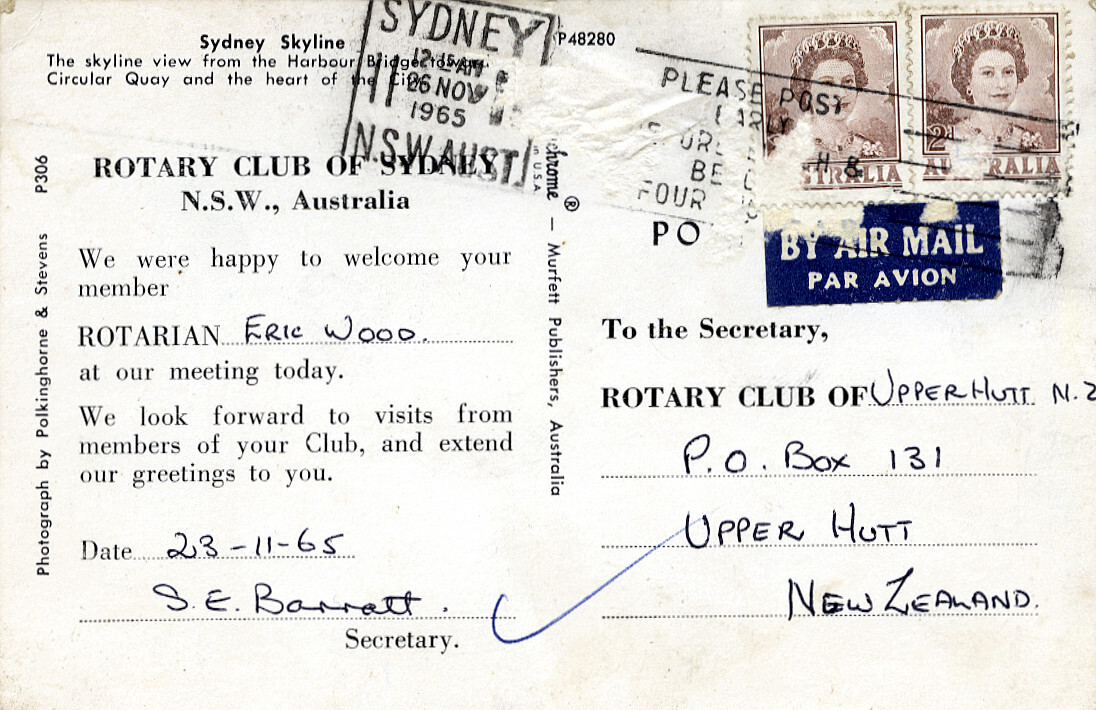 Sydney Skyline
The skyline view from the Harbour Bridge towards
Circular Quay and the heart of the City.
P48280
SYDNEY
12 15 AM
26 NOV
1965
N.S.W. AUST
PLEASE POST
EARLY
BE
FOUR
2D
AUSTRALIA
BY AIR MAIL
PAR AVION
PO
Photograph by Polkinghorne & Stevens P306
ROTARY CLUB OF SYDNEY
N.S.W., Australia
We were happy to welcome your
member
ROTARIAN ERIC WOOD.
at our meeting today.
We look forward to visits from
members of your Club, and extend
our greetings to you.
Date 23-11-65
S. E. Barratt.
Secretary.
chrome ® — Murfett Publishers, Australia
in U.S.A.
To the Secretary,
ROTARY CLUB OF UPPER HUTT N.Z
P.O. Box 131
UPPER HUTT
NEW ZEALAND.